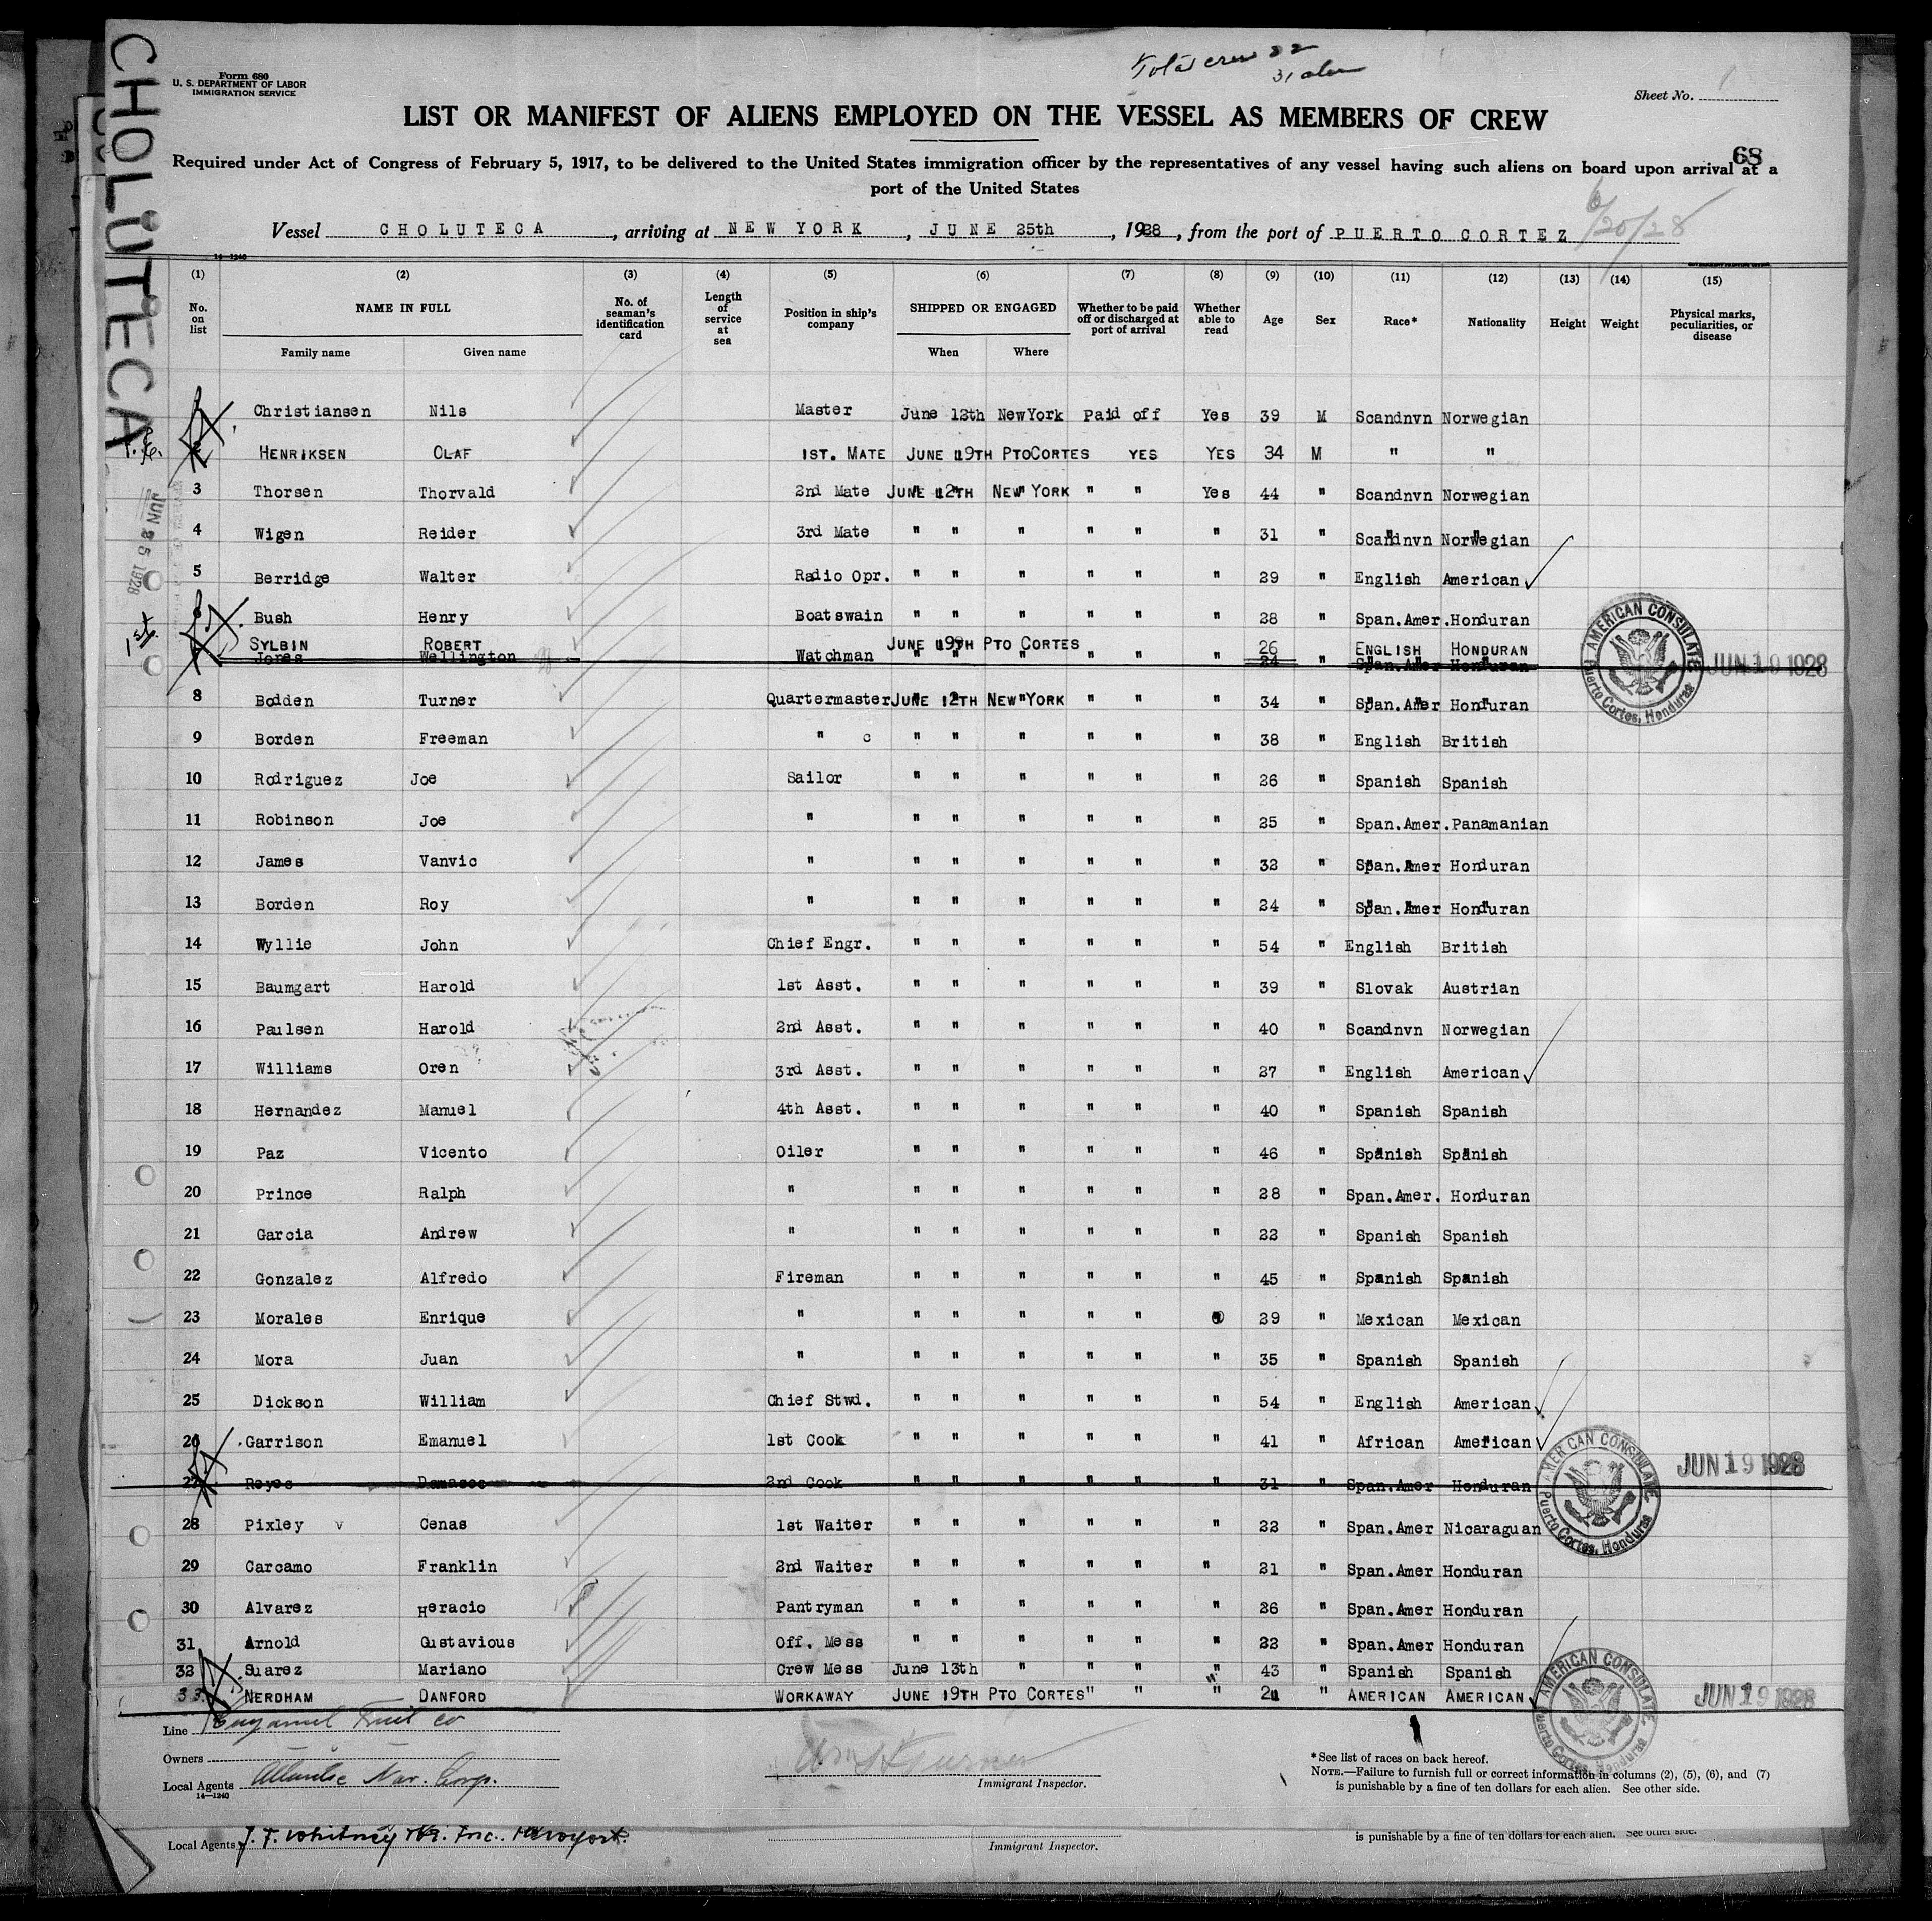 CHOLUTECA
Form 680
U. S. DEPARTMENT OF LABOR
IMMIGRATION SERVICE
Total crew 32
31 alien
Sheet No. 1
LIST OR MANIFEST OF ALIENS EMPLOYED ON THE VESSEL AS MEMBERS OF CREW
68
Required under Act of Congress of February 5, 1917, to be delivered to the United States immigration officer by the representatives of any vessel having such aliens on board upon arrival at a
port of the United States
Vessel CHOLUTECA, arriving at NEW YORK, JUNE 25th, 1928, from the port of PUERTO CORTEZ 6/20/28
14—1240
(1) (2) (3) (4) (5) (6) (7) (8) (9) (10) (11) (12) (13) (14) (15)
No. on list NAME IN FULL Family name Given name No. of seaman's identification card Length of service at sea Position in ship's company SHIPPED OR ENGAGED When Where Whether to be paid off or discharged at port of arrival Whether able to read Age Sex Race* Nationality Height Weight Physical marks, peculiarities, or disease
Christiansen Nils Master June 12th NewYork Paid off Yes 39 M Scandnvn Norwegian
2 HENRIKSEN OLAF 1ST. MATE JUNE 19TH PTOCORTES YES YES 34 M " "
3 Thorsen Thorvald 2nd Mate JUNE 12TH NEW YORK " " Yes 44 " Scandnvn Norwegian
4 Wigen Reider 3rd Mate " " " " " " 31 " Scandnvn Norwegian
5 Berridge Walter Radio Opr. " " " " " " 29 " English American
6 Bush Henry Boatswain " " " " " " 28 " Span.Amer. Honduran
SYLBIN ROBERT JUNE 19TH PTO CORTES 26 ENGLISH HONDURAN
Jones Wellington Watchman " " " " " " 24 " Span.Amer Honduran
AMERICAN CONSULATE Puerto Cortes, Honduras JUN 19 1928
8 Bodden Turner Quartermaster JUNE 12TH NEW YORK " " " 34 " Span.Amer Honduran
9 Borden Freeman " c " " " " " " 38 " English British
10 Rodriguez Joe Sailor " " " " " " 26 " Spanish Spanish
11 Robinson Joe " " " " " " " 25 " Span.Amer. Panamanian
12 James Vanvic " " " " " " " 32 " Span.Amer Honduran
13 Borden Roy " " " " " " " 24 " Span.Amer Honduran
14 Wyllie John Chief Engr. " " " " " " 54 " English British
15 Baumgart Harold 1st Asst. " " " " " " 39 " Slovak Austrian
16 Paulsen Harold 2nd Asst. " " " " " " 40 " Scandnvn Norwegian
17 Williams Oren 3rd Asst. " " " " " " 27 " English American
18 Hernandez Manuel 4th Asst. " " " " " " 40 " Spanish Spanish
19 Paz Vicento Oiler " " " " " " 46 " Spanish Spanish
20 Prince Ralph " " " " " " " 28 " Span.Amer. Honduran
21 Garcia Andrew " " " " " " " 22 " Spanish Spanish
22 Gonzalez Alfredo Fireman " " " " " " 45 " Spanish Spanish
23 Morales Enrique " " " " " " " 29 " Mexican Mexican
24 Mora Juan " " " " " " " 35 " Spanish Spanish
25 Dickson William Chief Stwd. " " " " " " 54 " English American
26 Garrison Emanuel 1st Cook " " " " " " 41 " African American
27 Reyes Damasco 2nd Cook " " " " " " 31 " Span.Amer Honduran
AMERICAN CONSULATE Puerto Cortes, Honduras JUN 19 1928
28 Pixley v Cenas 1st Waiter " " " " " " 22 " Span.Amer Nicaraguan
29 Carcamo Franklin 2nd Waiter " " " " " " 21 " Span.Amer Honduran
30 Alvarez Heracio Pantryman " " " " " " 26 " Span.Amer Honduran
31 Arnold Gustavious Off. Mess " " " " " " 22 " Span.Amer Honduran
32 Suarez Mariano Crew Mess June 13th " " " " 43 " Spanish Spanish
33. NERDHAM DANFORD WORKAWAY JUNE 19TH PTO CORTES " " " 21 " AMERICAN AMERICAN
AMERICAN CONSULATE Puerto Cortes, Honduras JUN 19 1928
1st.
JUN 25 1928
Line Cuyamel Fruit Co
Owners
Local Agents Atlantic Nav. Corp.
14—1240
Immigrant Inspector.
*See list of races on back hereof.
NOTE.—Failure to furnish full or correct information in columns (2), (5), (6), and (7)
is punishable by a fine of ten dollars for each alien. See other side.
Local Agents J. F. Whitney & Co. Inc. New York.
Immigrant Inspector.
is punishable by a fine of ten dollars for each alien. See other side.